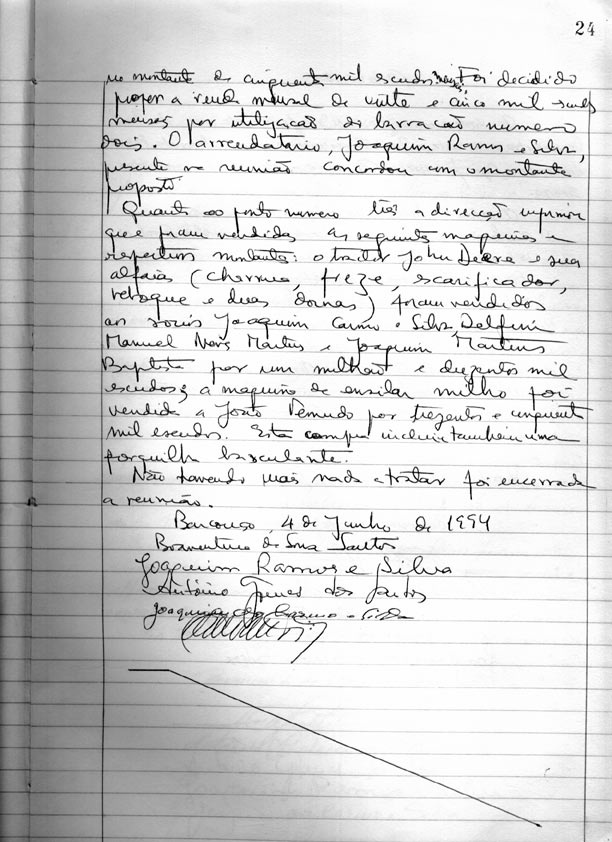 24
no montante de cinquenta mil escudos Foi decidido
propor a renda mensal de vinte e cinco mil
mensais por utilização do barracão numero
dois. O arrendatário, Joaquim Ramos e Silva,
presente na reunião concordou com o montante
proposto
Quanto ao ponto numero três a direcção
que foram vendidas as seguintes maquinas e
respectivos montantes: o trator John Deere e suas
alfaias (charrua, freze, escarificador,
reboque e duas dornas) foram vendidos
aos socios Joaquim Carmo e Silva Delfim
Manuel Martins e Joaquim Martins
Baptista por um milhão e duzentos mil
escudos; a maquina de ensilar milho foi
vendida a João por trezentos e cinquenta
mil escudos. Esta compra incluiu tambem uma
forquilha basculante.
Não havendo mais nada a tratar foi encerrada
a reunião.
Barcouço, 4 de Junho de 1994
Boaventura de Sousa Santos
Joaquim Ramos e Silva
António dos Santos
Joaquim Carmo e Silva